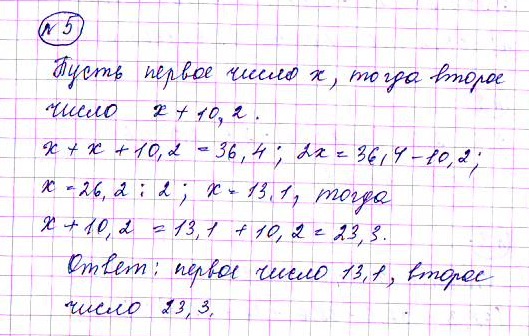 № 5
Пусть первое число x, тогда второе
число x + 10,2.
x + x + 10,2 = 36,4; 2x = 36,4 - 10,2;
x = 26,2 : 2; x = 13,1, тогда
x + 10,2 = 13,1 + 10,2 = 23,3.
Ответ: первое число 13,1, второе
число 23,3.